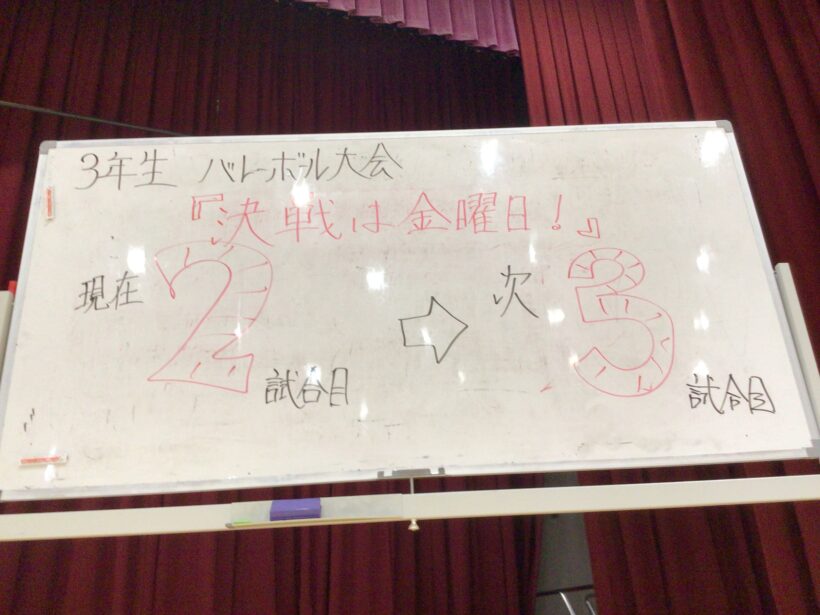 3年生 バレーボール大会
『決戦は金曜日！』
現在 2 試合目 ⇨ 次 3 試合目